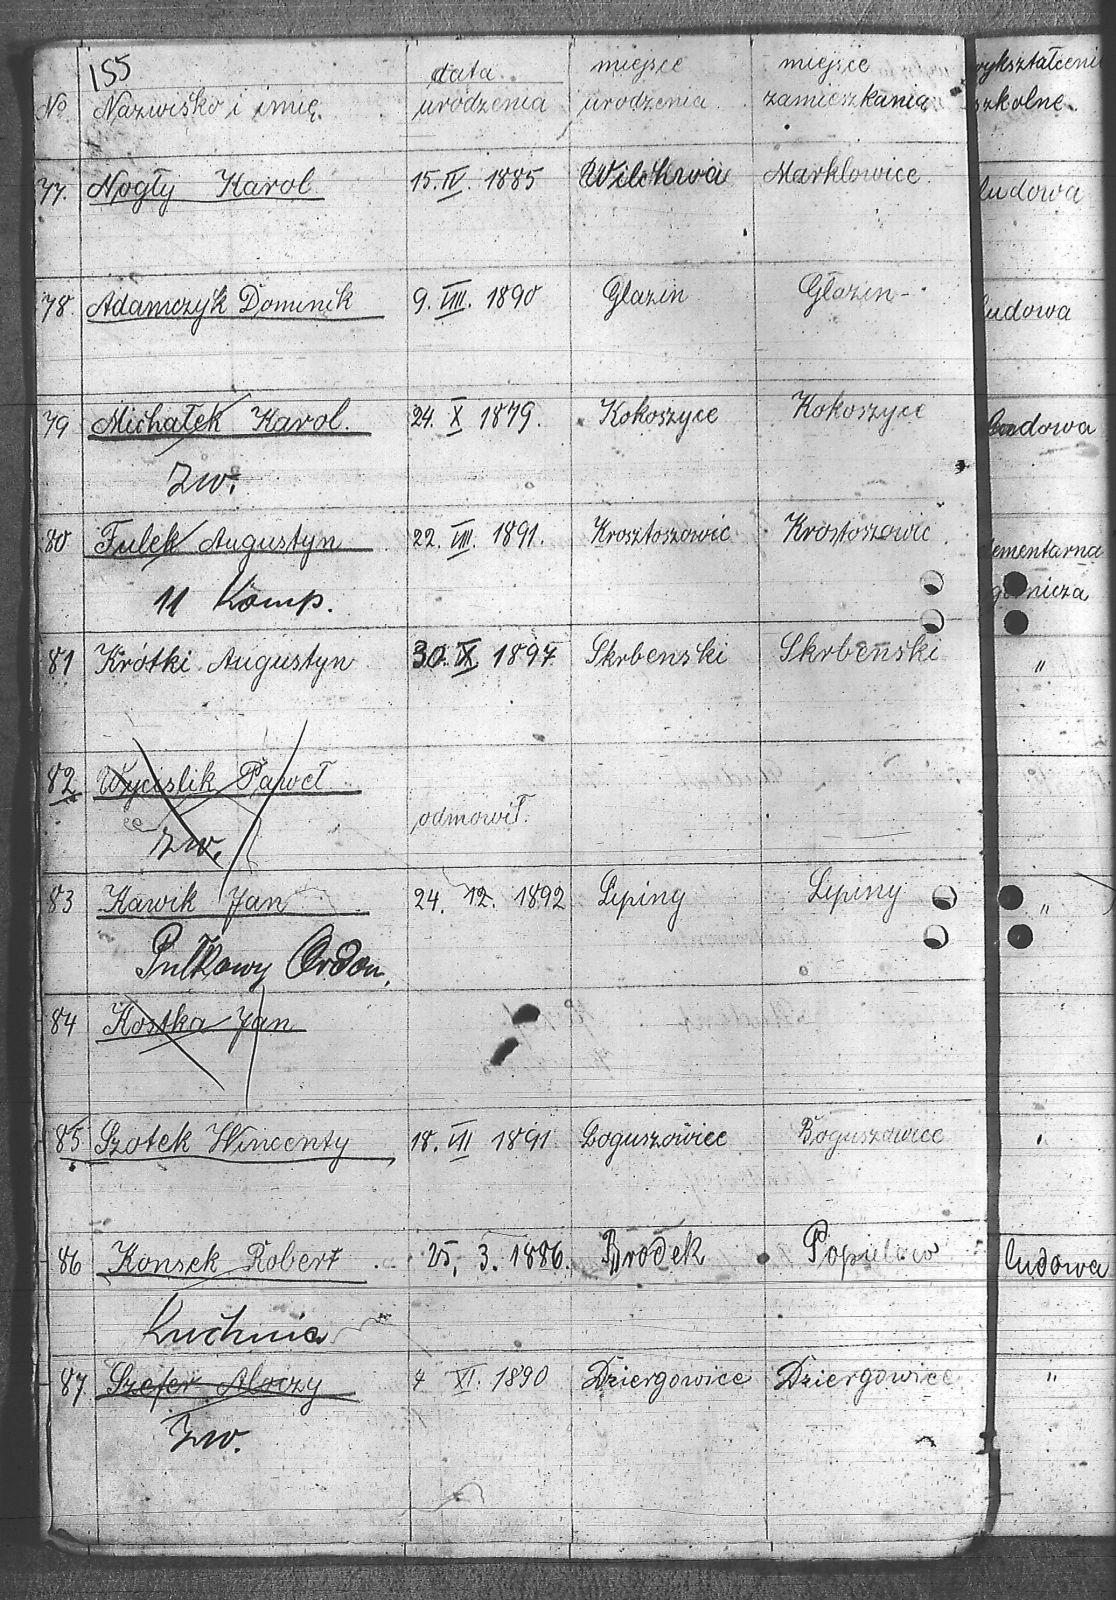 155
No Nazwisko i imię. data urodzenia miejsce urodzenia. miejsce zamieszkania wykształceni szkolne.
77. Nogły Karol 15. IV. 1885 Wilchwa Marklowice ludowa
78. Adamczyk Dominik 9. VIII. 1890 Glazin Głazin- ludowa
79 Michałek Karol. 24. X 1879. Kokoszyce Kokoszyce ludowa
Zw.
80 Fulek Augustyn 22. VIII. 1891. Krosztoszowic Krostoszowic elementarna
11 Komp. górnicza
81 Krótki Augustyn 30. IX 1897 Skrbenski Skrbeński "
82. Wycislik Paweł
odmówił.
Zw.
83 Kawik Jan 24. 12. 1892 Lipiny Lipiny "
Pułkowy Ordon.
84 Kostka Jan
85 Szotek Wincenty 18. VII 1891 Boguszowiec Boguszowice
86 Konsek Robert 25. 3. 1886. Brodek Popielów ludowa
Kuchnia
87. Szefer Alojzy 4 XI. 1890 Dziergowice Dziergowice "
Zw.